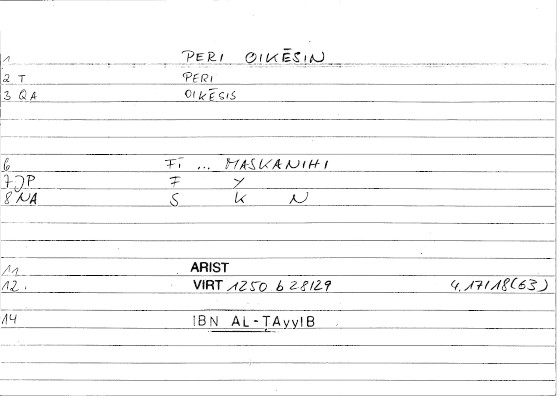 1 PERI OIKĒSIN
2 T PERI
3 QA OIKĒSIS
6 FĪ ... MASKANIHI
7 JP F Y
8 NA S K N
11 ARIST
12. VIRT 1250 b 28/29 4.17/18(63)
14 IBN AL-ṬAyyIB